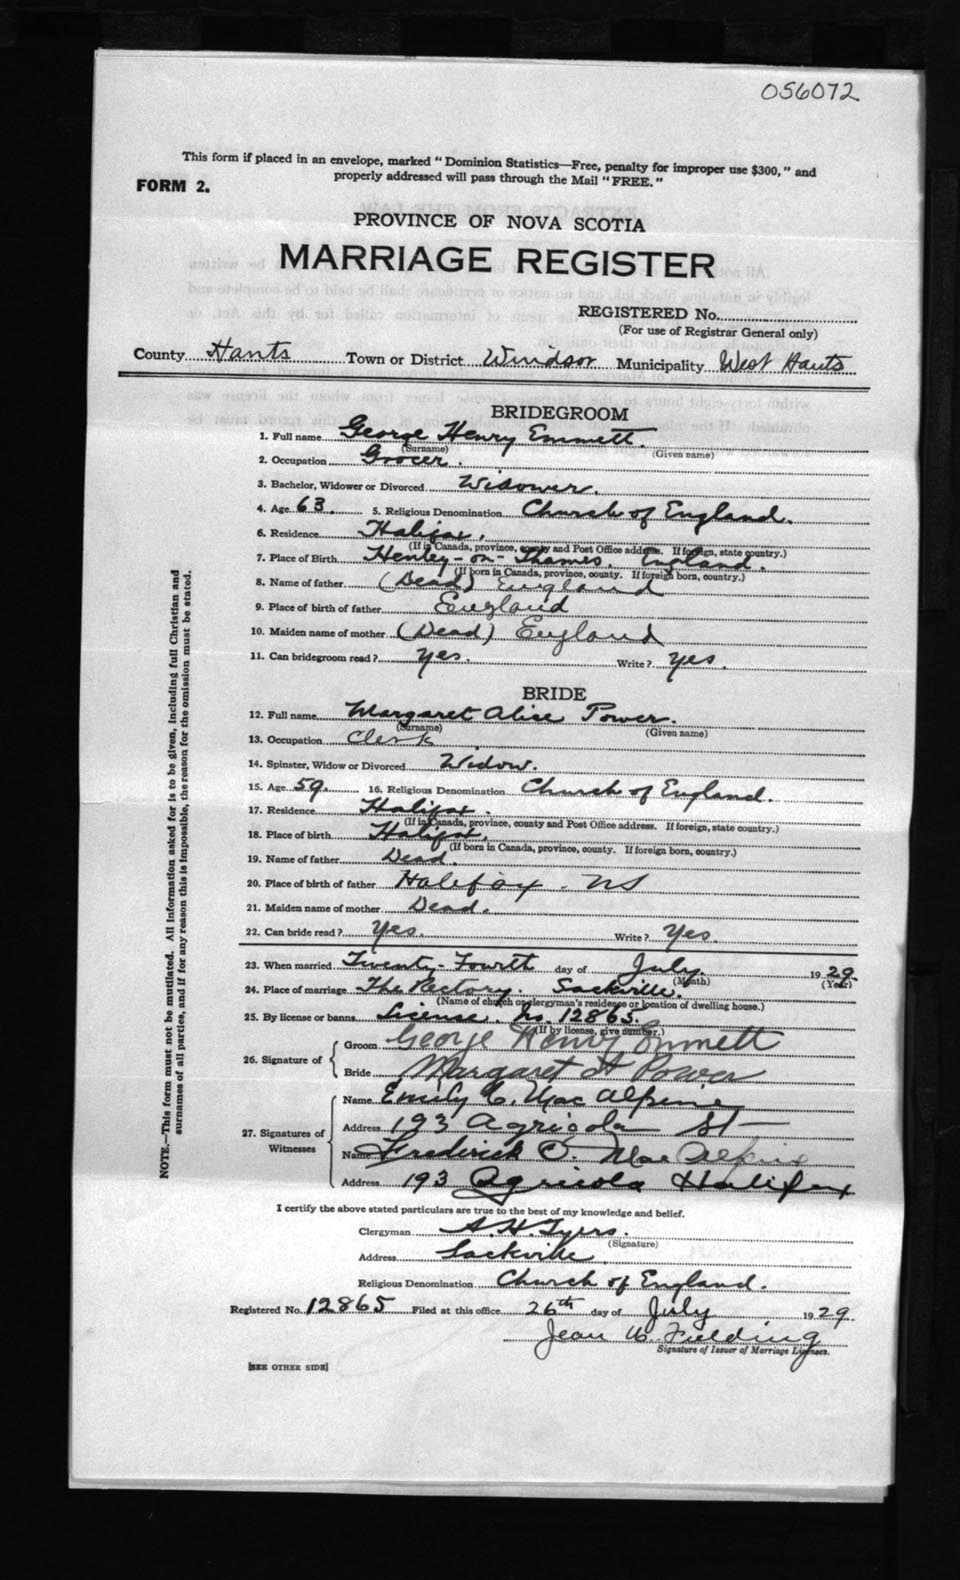 056072
This form if placed in an envelope, marked "Dominion Statistics—Free, penalty for improper use $300," and
properly addressed will pass through the Mail "FREE."
FORM 2.
PROVINCE OF NOVA SCOTIA
MARRIAGE REGISTER
REGISTERED No.
(For use of Registrar General only)
County Hants Town or District Windsor Municipality West Hants
BRIDEGROOM
1. Full name George Henry Emmett.
(Surname) (Given name)
2. Occupation Grocer.
3. Bachelor, Widower or Divorced Widower.
4. Age 63. 5. Religious Denomination Church of England.
6. Residence Halifax.
(If in Canada, province, county and Post Office address. If foreign, state country.)
7. Place of Birth Henley-on-Thames, England.
(If born in Canada, province, county. If foreign born, country.)
8. Name of father (Dead) England
9. Place of birth of father England
10. Maiden name of mother (Dead) England
11. Can bridegroom read? Yes. Write? Yes.
BRIDE
12. Full name Margaret Alice Power.
(Surname) (Given name)
13. Occupation Clerk
14. Spinster, Widow or Divorced Widow.
15. Age 59. 16. Religious Denomination Church of England.
17. Residence Halifax.
(If in Canada, province, county and Post Office address. If foreign, state country.)
18. Place of birth Halifax.
(If born in Canada, province, county. If foreign born, country.)
19. Name of father Dead.
20. Place of birth of father Halifax. NS
21. Maiden name of mother Dead.
22. Can bride read? Yes. Write? Yes.
23. When married Twenty-Fourth day of July. 1929.
(Month) (Year)
24. Place of marriage The Rectory. Sackville.
(Name of church or clergyman's residence or location of dwelling house.)
25. By license or banns License. No. 12865.
(If by license, give number.)
26. Signature of
Groom George Henry Emmett
Bride Margaret A Power
27. Signatures of Witnesses
Name Emily C. MacAlpine
Address 193 Agricola St
Name Frederick MacAlpine
Address 193 Agricola Halifax
I certify the above stated particulars are true to the best of my knowledge and belief.
Clergyman A. H. Tyers.
(Signature)
Address Sackville.
Religious Denomination Church of England.
Registered No. 12865 Filed at this office 26th day of July 1929.
Jean W. Fielding
Signature of Issuer of Marriage Licenses.
[SEE OTHER SIDE]
NOTE.—This form must not be mutilated. All information asked for is to be given, including full Christian and
surnames of all parties, and if for any reason this is impossible, the reason for the omission must be stated.